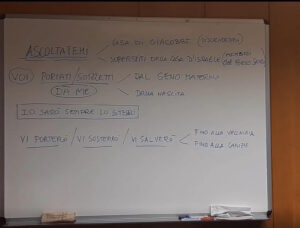 CASA DI GIACOBBE (DISCENDENTI)
ASCOLTATEMI
SUPERSTITI DELLA CASA D'ISRAELE (MEMBRI del
VOI PORTATI/SORRETTI DAL SENO MATERNO
DA ME DALLA NASCITA
IO SARÒ SEMPRE LO STESSO
VI PORTERÒ / VI SOSTERRÒ / VI SALVERÒ FINO ALLA VECCHIAIA
FINO ALLA CANIZIE